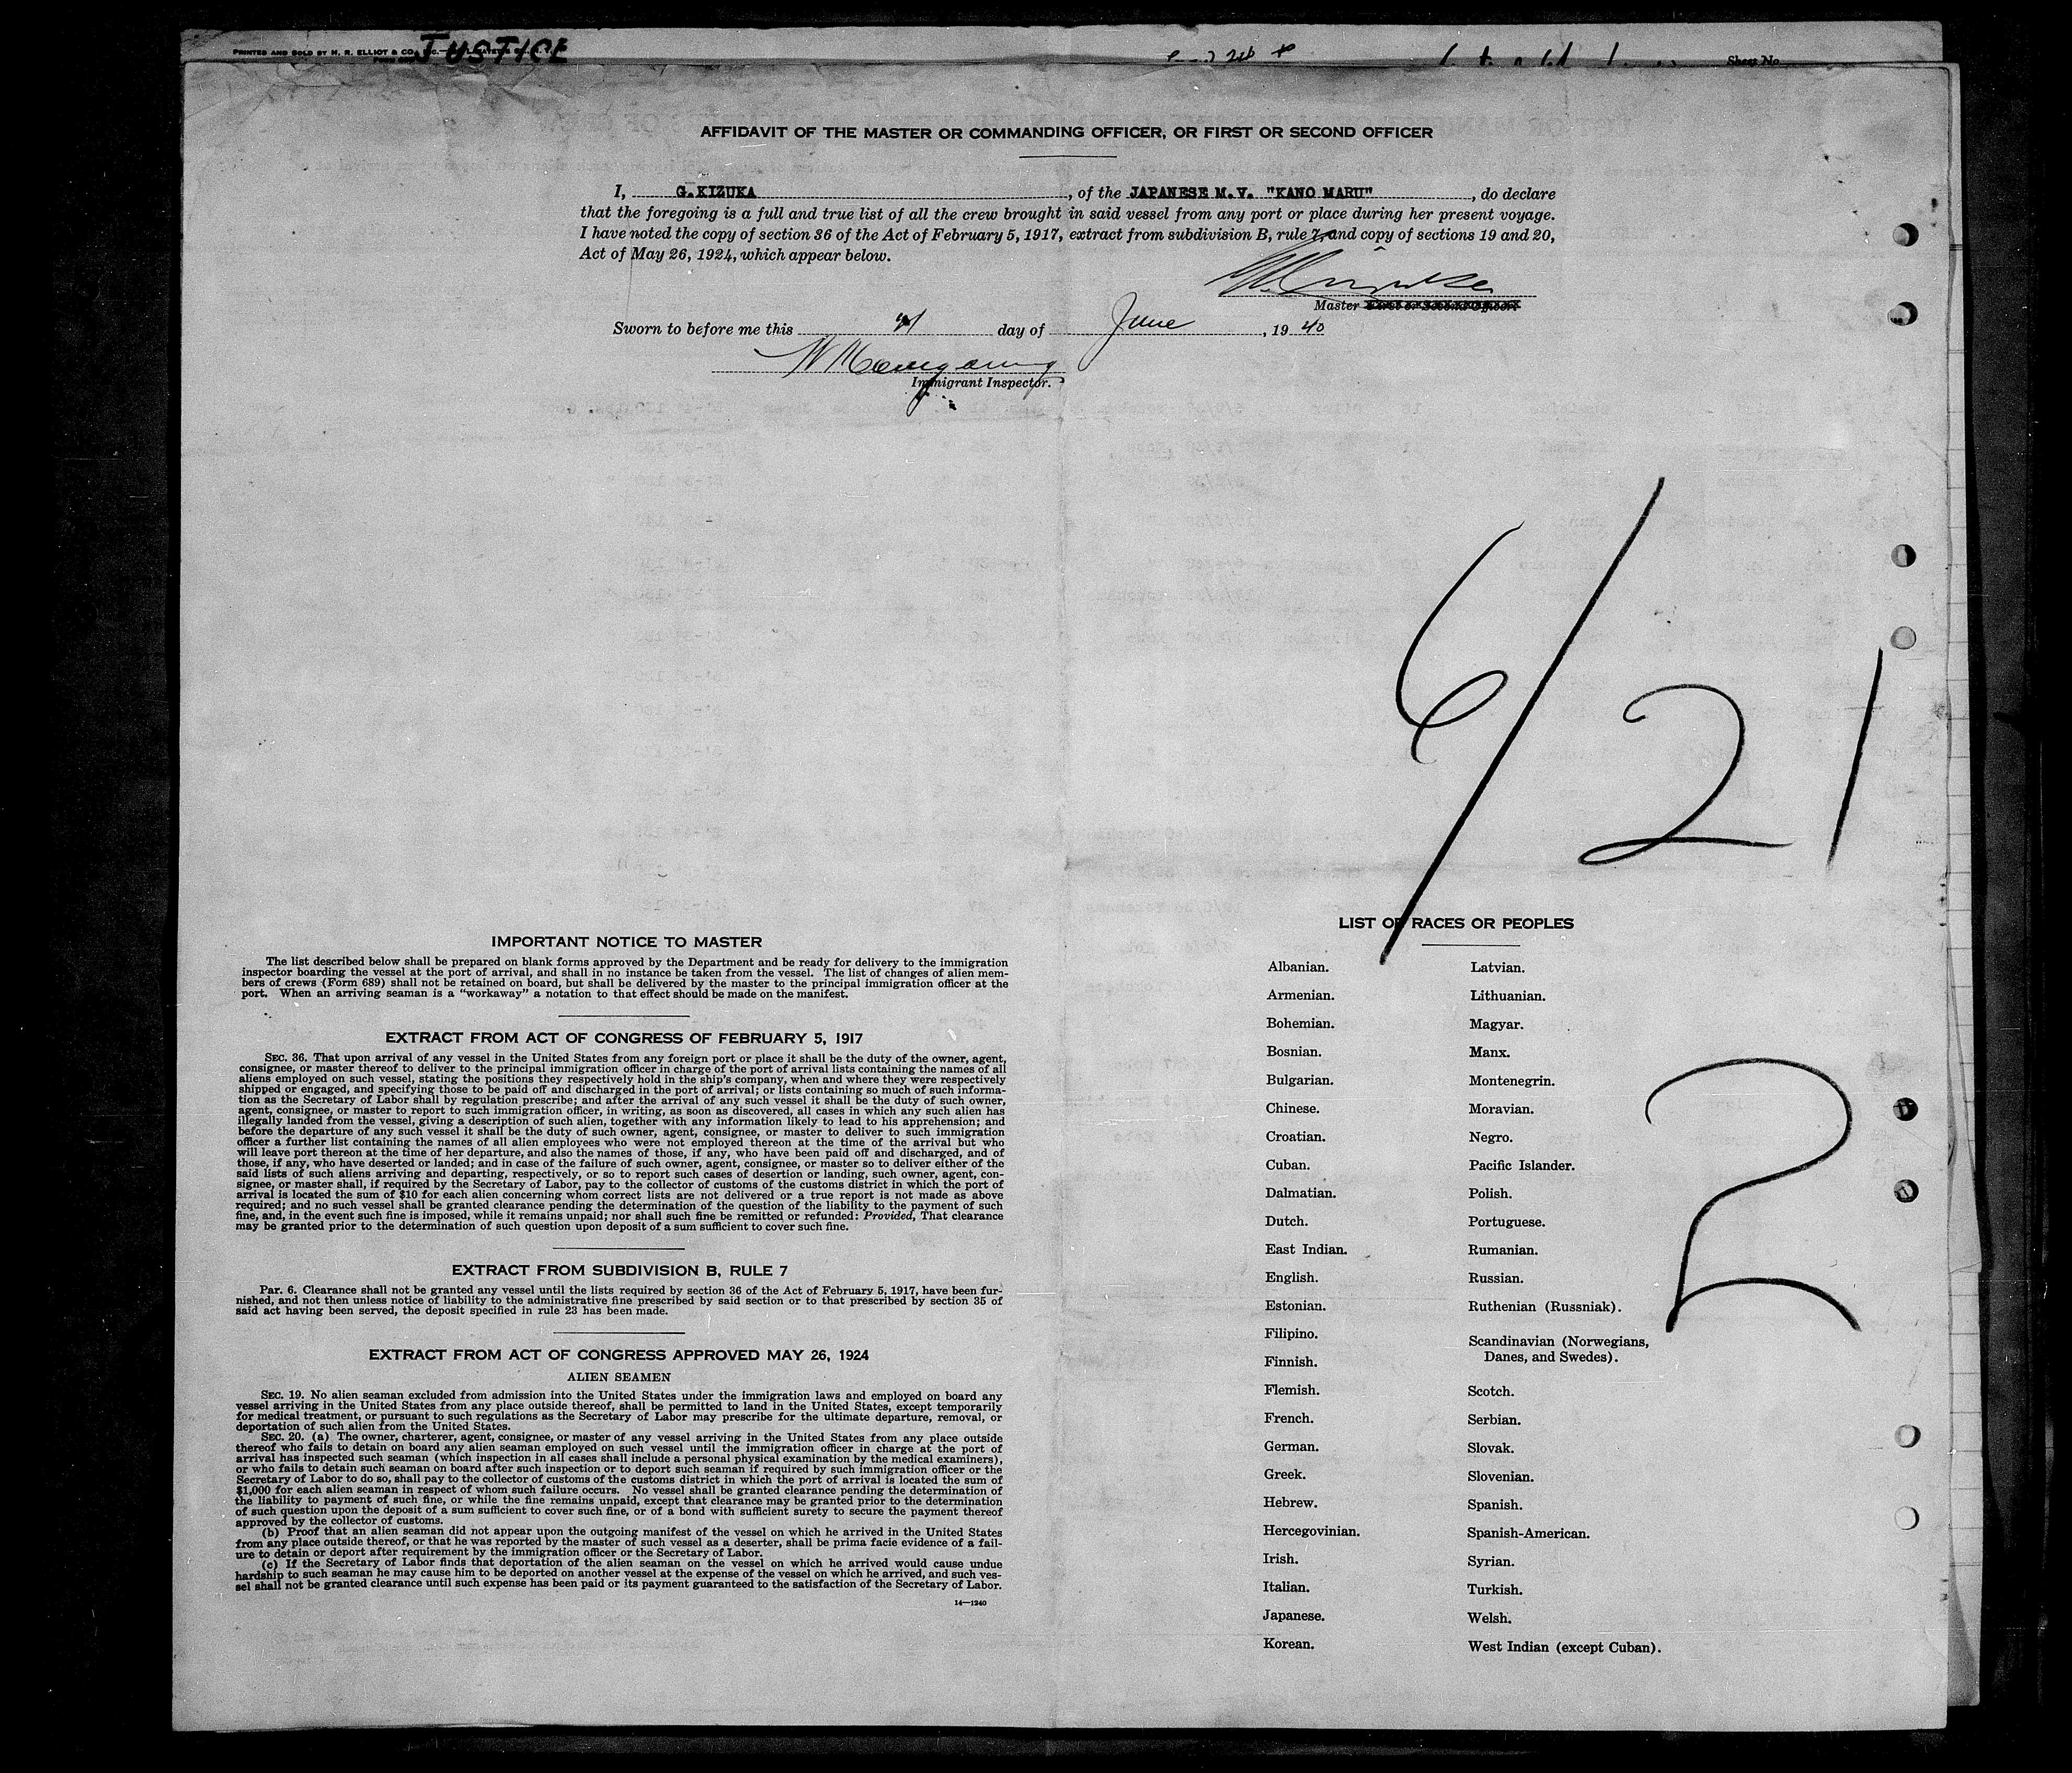 PRINTED AND SOLD BY H. R. ELLIOT & CO.
JUSTICE
Sheet No.
AFFIDAVIT OF THE MASTER OR COMMANDING OFFICER, OR FIRST OR SECOND OFFICER
I, G. KIZUKA, of the JAPANESE M.V. "KANO MARU", do declare
that the foregoing is a full and true list of all the crew brought in said vessel from any port or place during her present voyage.
I have noted the copy of section 36 of the Act of February 5, 1917, extract from subdivision B, rule 7, and copy of sections 19 and 20,
Act of May 26, 1924, which appear below.
Master First or Second Officer.
Sworn to before me this 21 day of June, 19 40
Immigrant Inspector.
6/21
2
IMPORTANT NOTICE TO MASTER
The list described below shall be prepared on blank forms approved by the Department and be ready for delivery to the immigration
inspector boarding the vessel at the port of arrival, and shall in no instance be taken from the vessel. The list of changes of alien mem-
bers of crews (Form 689) shall not be retained on board, but shall be delivered by the master to the principal immigration officer at the
port. When an arriving seaman is a "workaway" a notation to that effect should be made on the manifest.
EXTRACT FROM ACT OF CONGRESS OF FEBRUARY 5, 1917
SEC. 36. That upon arrival of any vessel in the United States from any foreign port or place it shall be the duty of the owner, agent,
consignee, or master thereof to deliver to the principal immigration officer in charge of the port of arrival lists containing the names of all
aliens employed on such vessel, stating the positions they respectively hold in the ship's company, when and where they were respectively
shipped or engaged, and specifying those to be paid off and discharged in the port of arrival; or lists containing so much of such informa-
tion as the Secretary of Labor shall by regulation prescribe; and after the arrival of any such vessel it shall be the duty of such owner,
agent, consignee, or master to report to such immigration officer, in writing, as soon as discovered, all cases in which any such alien has
illegally landed from the vessel, giving a description of such alien, together with any information likely to lead to his apprehension; and
before the departure of any such vessel it shall be the duty of such owner, agent, consignee, or master to deliver to such immigration
officer a further list containing the names of all alien employees who were not employed thereon at the time of the arrival but who
will leave port thereon at the time of her departure, and also the names of those, if any, who have been paid off and discharged, and of
those, if any, who have deserted or landed; and in case of the failure of such owner, agent, consignee, or master so to deliver either of the
said lists of such aliens arriving and departing, respectively, or so to report such cases of desertion or landing, such owner, agent, con-
signee, or master shall, if required by the Secretary of Labor, pay to the collector of customs of the customs district in which the port of
arrival is located the sum of $10 for each alien concerning whom correct lists are not delivered or a true report is not made as above
required; and no such vessel shall be granted clearance pending the determination of the question of the liability to the payment of such
fine, and, in the event such fine is imposed, while it remains unpaid; nor shall such fine be remitted or refunded: Provided, That clearance
may be granted prior to the determination of such question upon deposit of a sum sufficient to cover such fine.
EXTRACT FROM SUBDIVISION B, RULE 7
Par. 6. Clearance shall not be granted any vessel until the lists required by section 36 of the Act of February 5, 1917, have been fur-
nished, and not then unless notice of liability to the administrative fine prescribed by said section or to that prescribed by section 35 of
said act having been served, the deposit specified in rule 23 has been made.
EXTRACT FROM ACT OF CONGRESS APPROVED MAY 26, 1924
ALIEN SEAMEN
SEC. 19. No alien seaman excluded from admission into the United States under the immigration laws and employed on board any
vessel arriving in the United States from any place outside thereof, shall be permitted to land in the United States, except temporarily
for medical treatment, or pursuant to such regulations as the Secretary of Labor may prescribe for the ultimate departure, removal, or
deportation of such alien from the United States.
SEC. 20. (a) The owner, charterer, agent, consignee, or master of any vessel arriving in the United States from any place outside
thereof who fails to detain on board any alien seaman employed on such vessel until the immigration officer in charge at the port of
arrival has inspected such seaman (which inspection in all cases shall include a personal physical examination by the medical examiners),
or who fails to detain such seaman on board after such inspection or to deport such seaman if required by such immigration officer or the
Secretary of Labor to do so, shall pay to the collector of customs of the customs district in which the port of arrival is located the sum of
$1,000 for each alien seaman in respect of whom such failure occurs. No vessel shall be granted clearance pending the determination of
the liability to payment of such fine, or while the fine remains unpaid, except that clearance may be granted prior to the determination
of such question upon the deposit of a sum sufficient to cover such fine, or of a bond with sufficient surety to secure the payment thereof
approved by the collector of customs.
(b) Proof that an alien seaman did not appear upon the outgoing manifest of the vessel on which he arrived in the United States
from any place outside thereof, or that he was reported by the master of such vessel as a deserter, shall be prima facie evidence of a fail-
ure to detain or deport after requirement by the immigration officer or the Secretary of Labor.
(c) If the Secretary of Labor finds that deportation of the alien seaman on the vessel on which he arrived would cause undue
hardship to such seaman he may cause him to be deported on another vessel at the expense of the vessel on which he arrived, and such ves-
sel shall not be granted clearance until such expense has been paid or its payment guaranteed to the satisfaction of the Secretary of Labor.
14—1240
LIST OF RACES OR PEOPLES
Albanian.
Armenian.
Bohemian.
Bosnian.
Bulgarian.
Chinese.
Croatian.
Cuban.
Dalmatian.
Dutch.
East Indian.
English.
Estonian.
Filipino.
Finnish.
Flemish.
French.
German.
Greek.
Hebrew.
Hercegovinian.
Irish.
Italian.
Japanese.
Korean.
Latvian.
Lithuanian.
Magyar.
Manx.
Montenegrin.
Moravian.
Negro.
Pacific Islander.
Polish.
Portuguese.
Rumanian.
Russian.
Ruthenian (Russniak).
Scandinavian (Norwegians,
Danes, and Swedes).
Scotch.
Serbian.
Slovak.
Slovenian.
Spanish.
Spanish-American.
Syrian.
Turkish.
Welsh.
West Indian (except Cuban).